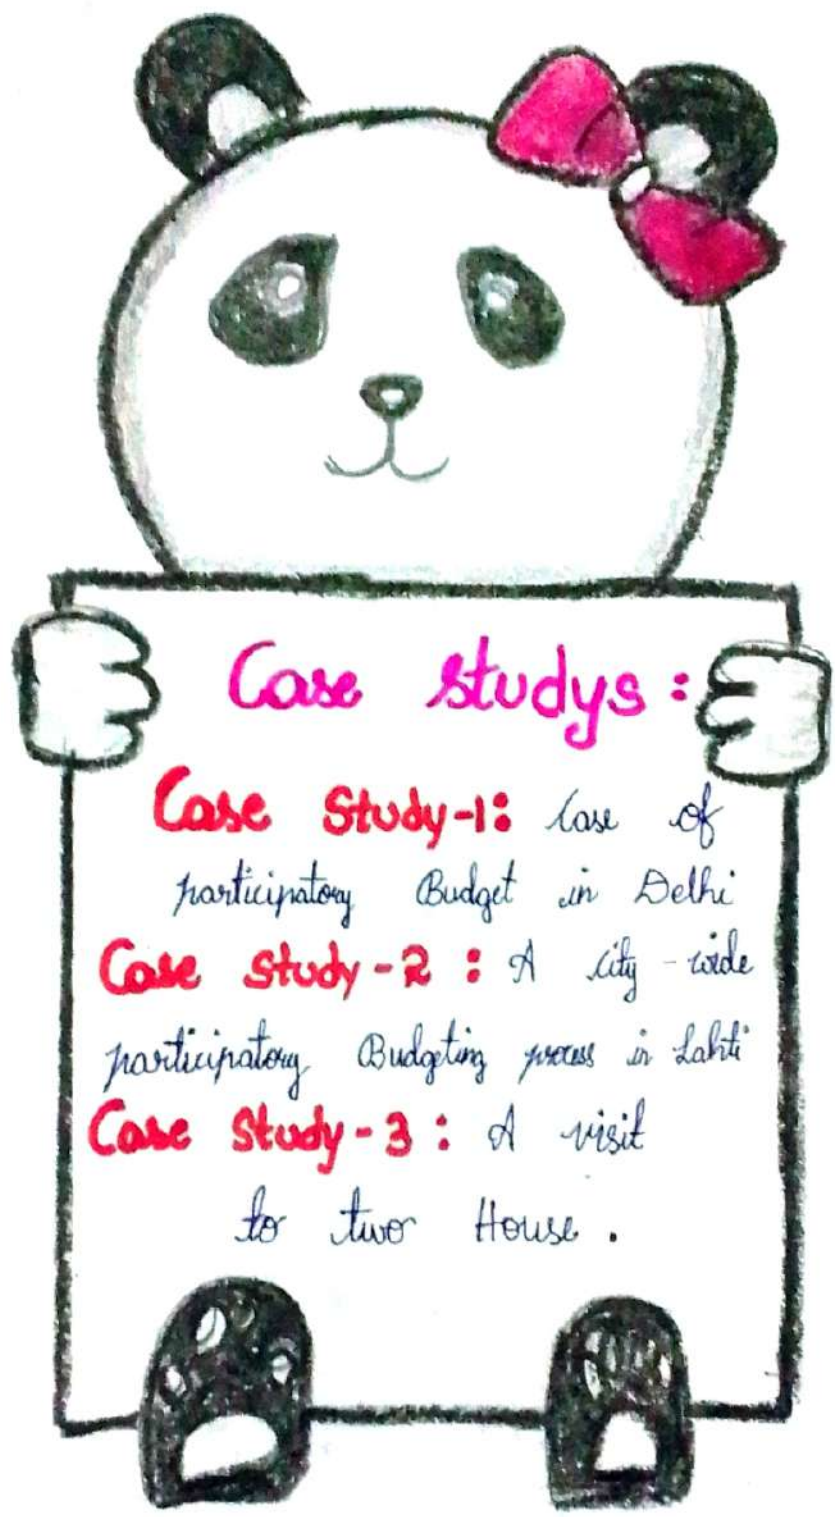 Case studys :
Case Study-1: Case of
participatory Budget in Delhi
Case study-2 : A city-wide
participatory Budgeting process in Lahti
Case Study-3 : A visit
to two House .